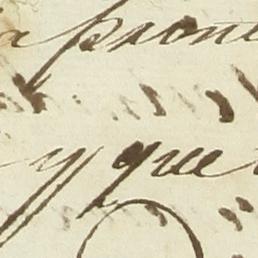 la pront
y que